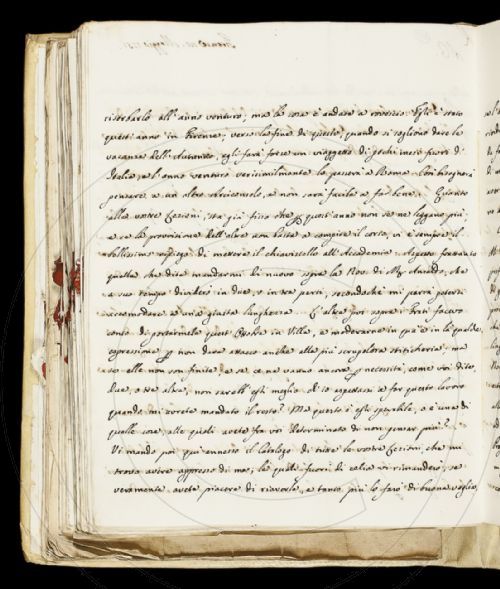 riserbarlo all'anno venturo; ma la cosa è andata a rovescio. Egli è stato
quest'anno in Firenze; verso la fine di questo, quando si sogliono dare le
vacanze dell'Autunno, egli farà forse un viaggetto di pochi mesi fuori di
Italia, e l'anno venturo verisimilmente la passerà a Roma. Così bisognerà
pensare a un altro Arciconsolo, e non sarà facile a far bene. Quanto
alle vostre Lezioni, sta già fisso che p quest'anno non se ne leggano più;
e se la provisione dell'altre non basta a compire il corso, vi è sempre il
bellissimo ripiego di mettere il chiavistello all'Accademia. Aspetto frattanto
quella che dite mandarmi di nuovo sopra la Nov. di
a suo tempo dividersi in due, o in tre parti, secondochè mi parrà potersi
accomodare a una giusta lunghezza. L'altre poi sopra i Frati facevo
conto di portarmele quest'Ottobre in Villa, e moderarne in qua e in là qualche
espressione p non dare attacco anche alla più scrupolosa stitichezza; ma
se elle non son finite, e se ce ne vanno ancora p necessità, come voi dite,
due, o tre altre, non sarebb'egli meglio ch'io aspettassi a far questo lavoro
quando mi avrete mandato il resto? Ma questo è egli sperabile, o è una di
quelle cose, alle quali avete fra voi determinato di non pensar più?
Vi mando poi qui annesso il Catalogo di tutte le vostre Lezioni, che mi
trovo avere appresso di me; le quali fuori di celia vi rimanderò, se
veramente avete piacere di riaverle, e tanto più lo farò di buona voglia,